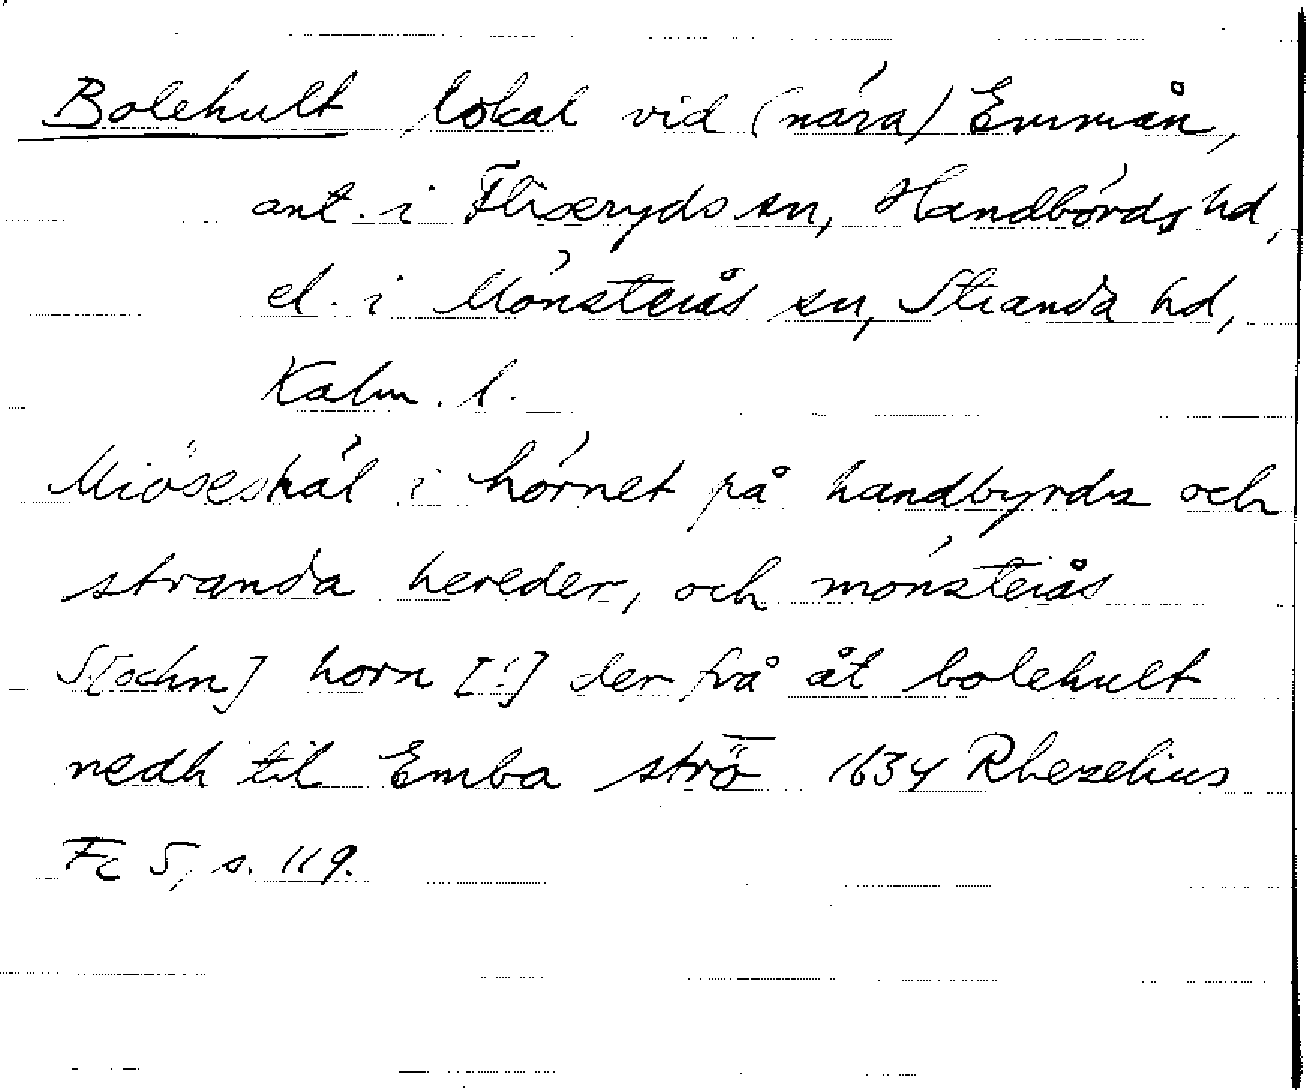 Bolehult, lokal vid (nära) Emmån,
ant. i Fliseryds sn, Handbörds hd,
el. i Mönsterås sn, Stranda hd,
Kalm. l.
Miöseshål i hörnet på handbyrdz och
stranda hereder, och mönsterås
S[ochn] horn [!] der frå åt bolehult
nedh til Emba strö̅ 1634 Rhezelius
Fc 5, s. 119.